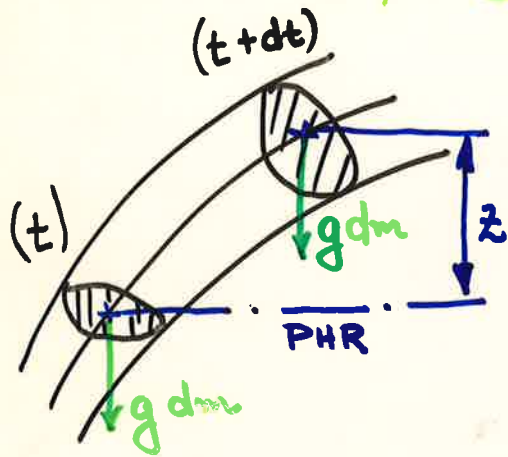 (t+dt)
(t)
g dm
z
PHR
g dm